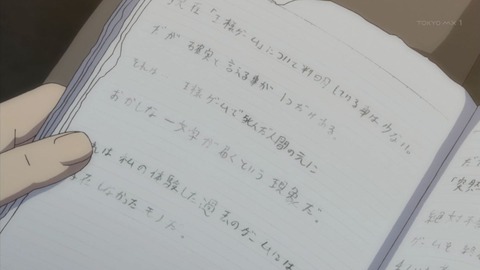 TOKYO MX 1
在「王様ゲーム」について判明している事は少ない。
だが 確実と言える事が 1つだけある。
それは 王様ゲームで死んだ人間の元に
おかしな 一文字が届くという現象だ。
れは 私の体験した過去のゲームには
モノだ。
だ
ゲームを